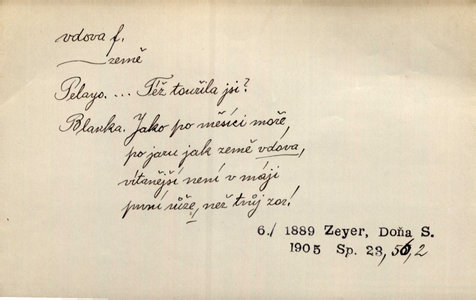 vdova f.
země
Pelayo. ... Též toužila jsi?
Blanka. Jako po měsíci moře,
po jaru jak země vdova,
vítanější není v máji
první růže, než tvůj zor!
6./ 1889 Zeyer, Doňa S.
1905 Sp. 23, 56, 2